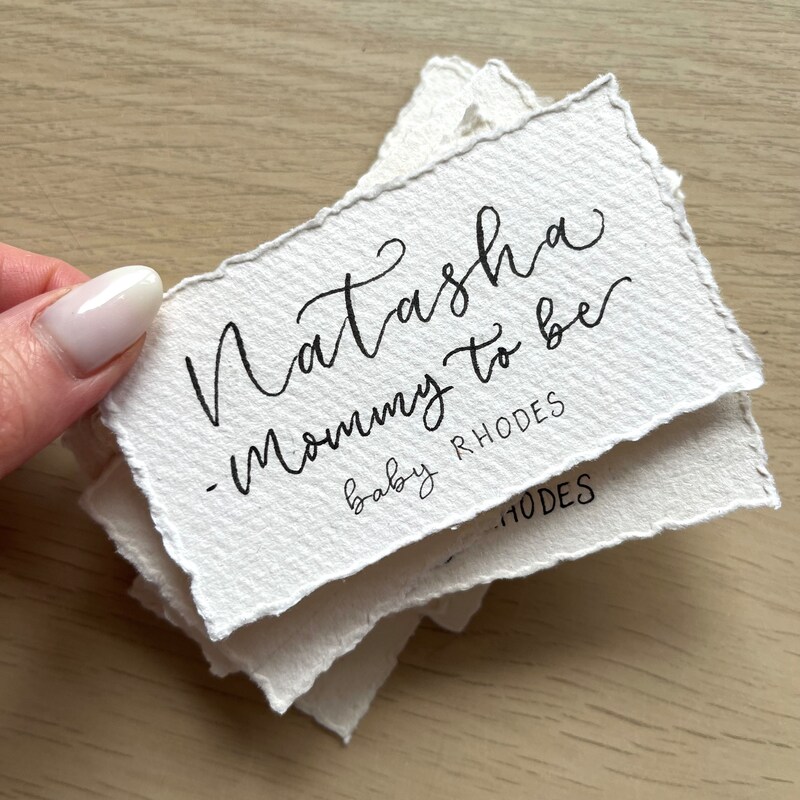 Natasha
-Mommy to be
baby RHODES
RHODES